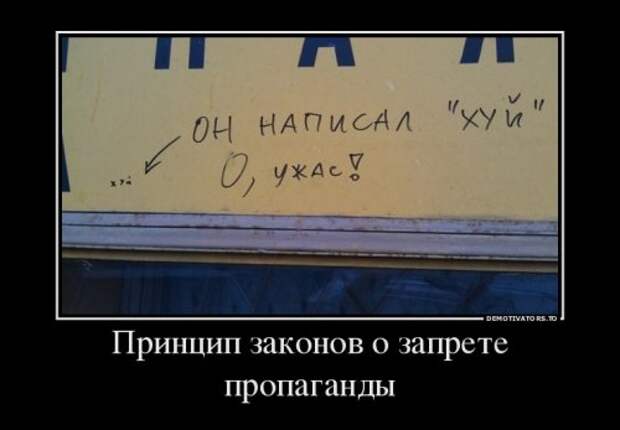 ОН НАПИСАЛ "ХУЙ"
О, УЖАС!
хуй
DEMOTIVATORS.TO
Принцип законов о запрете
пропаганды